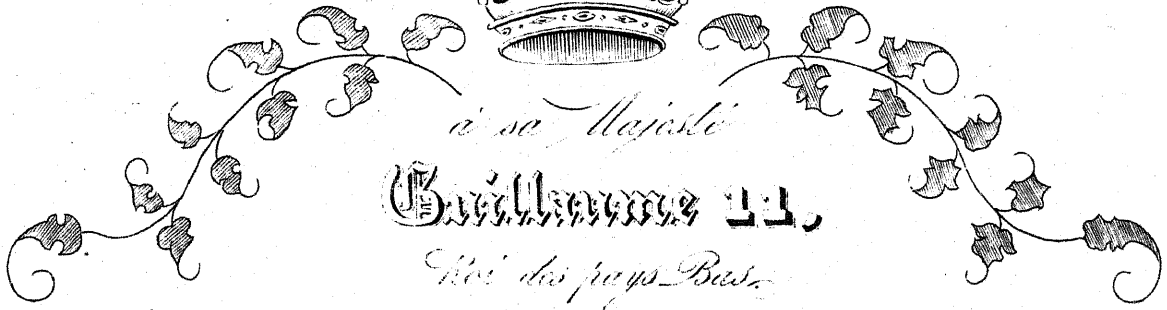 à sa Majesté
Guillaume II,
Roi des pays Bas.